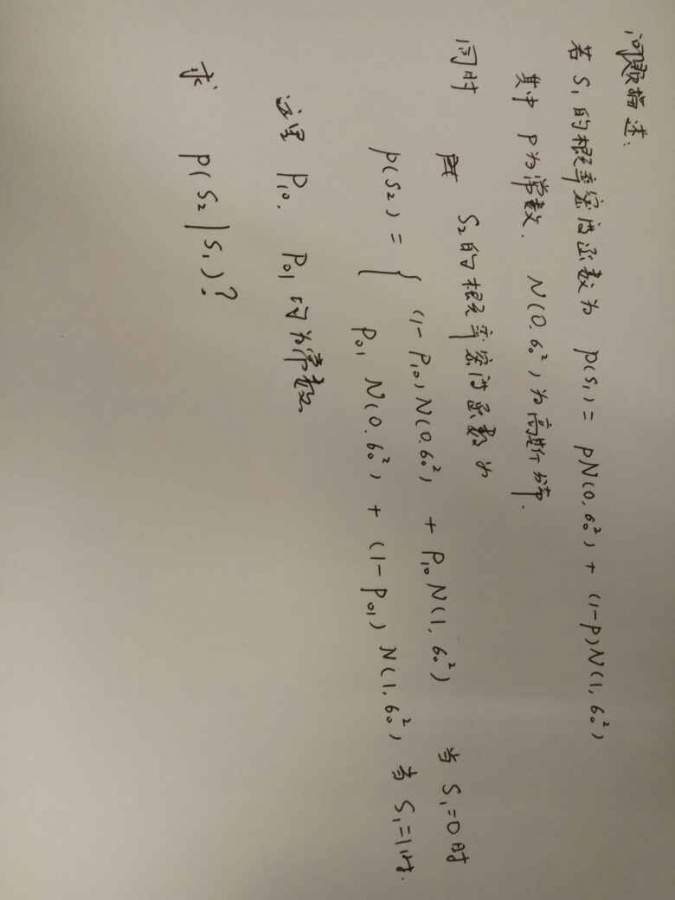 问题描述:
若 S₁ 的概率密度函数为 p(S₁) = pN(0, σ₀²) + (1-p)N(1, σ₀²)
其中 p 为常数. N(0, σ₀²) 为高斯分布.
同时 S₂ 的概率密度函数为
p(S₂) = { (1-P₁₀) N(0, σ₀²) + P₁₀ N(1, σ₀²) 当 S₁=0 时
P₀₁ N(0, σ₀²) + (1-P₀₁) N(1, σ₀²) 当 S₁=1时.
这里 P₁₀. P₀₁ 均为常数
求 p(S₂|S₁)?